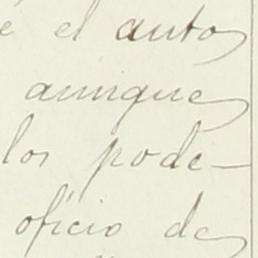 é el auto
aunque
los pode-
oficio de